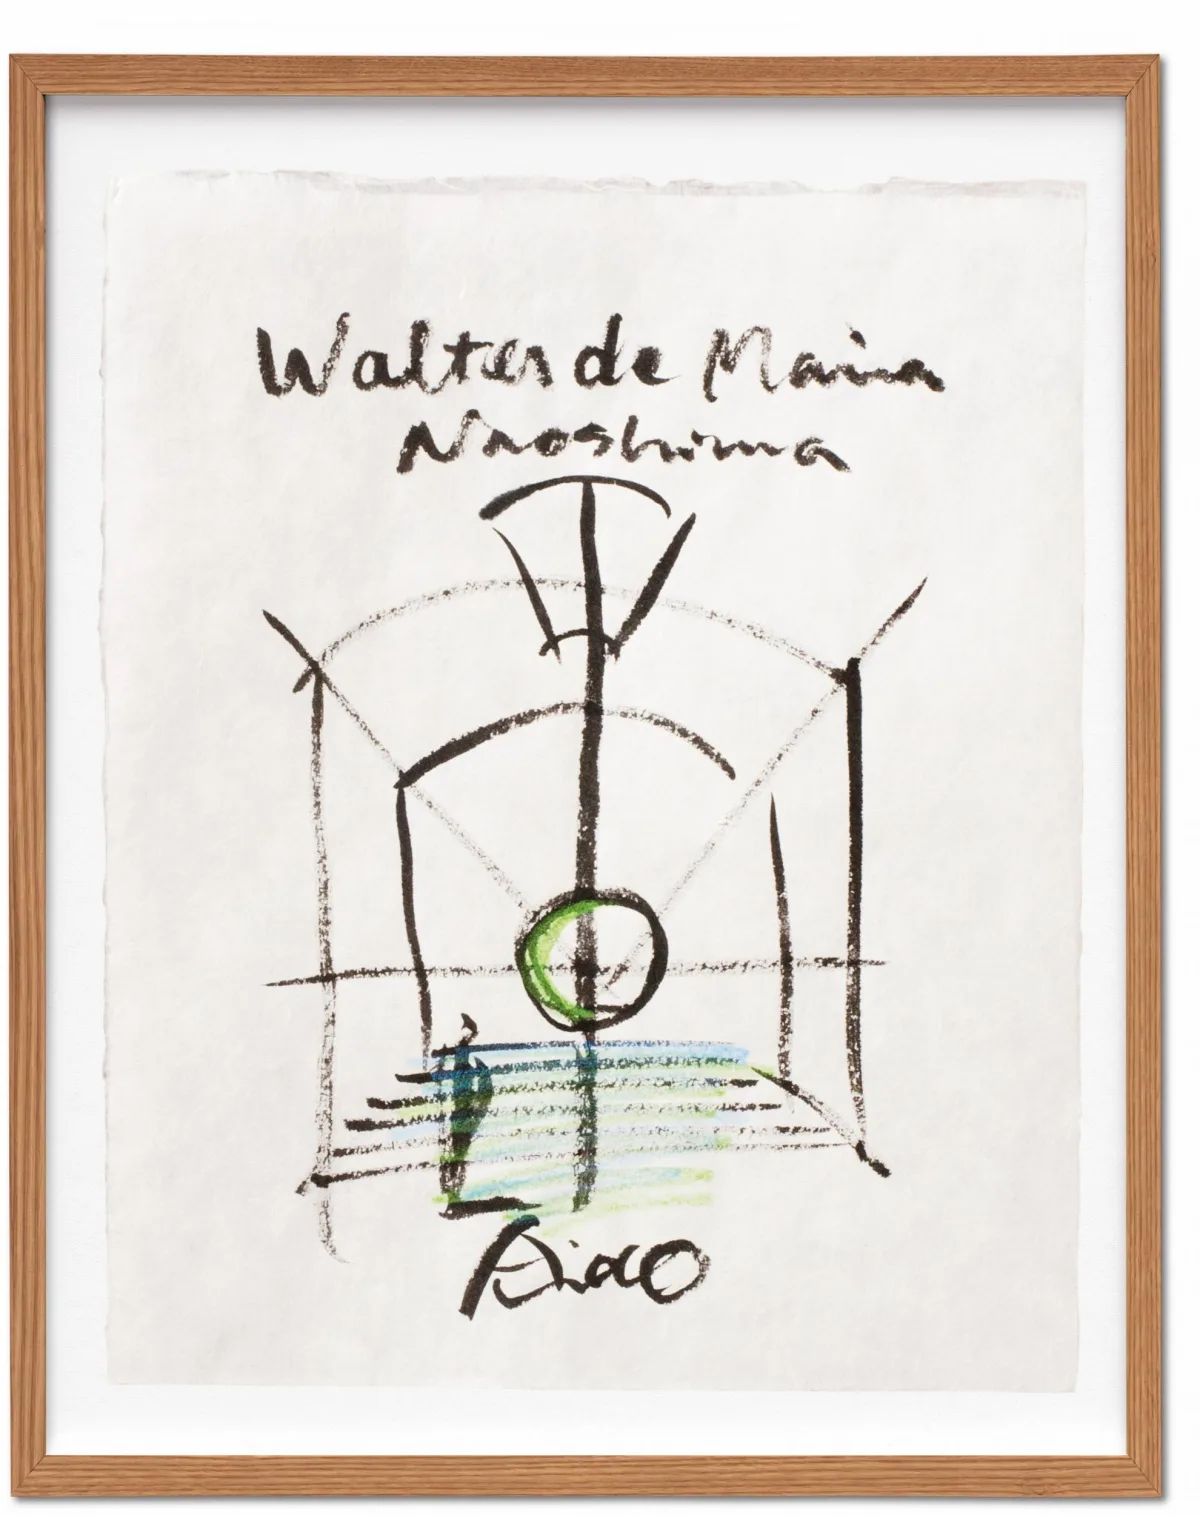 Walter de Maria
Naoshima